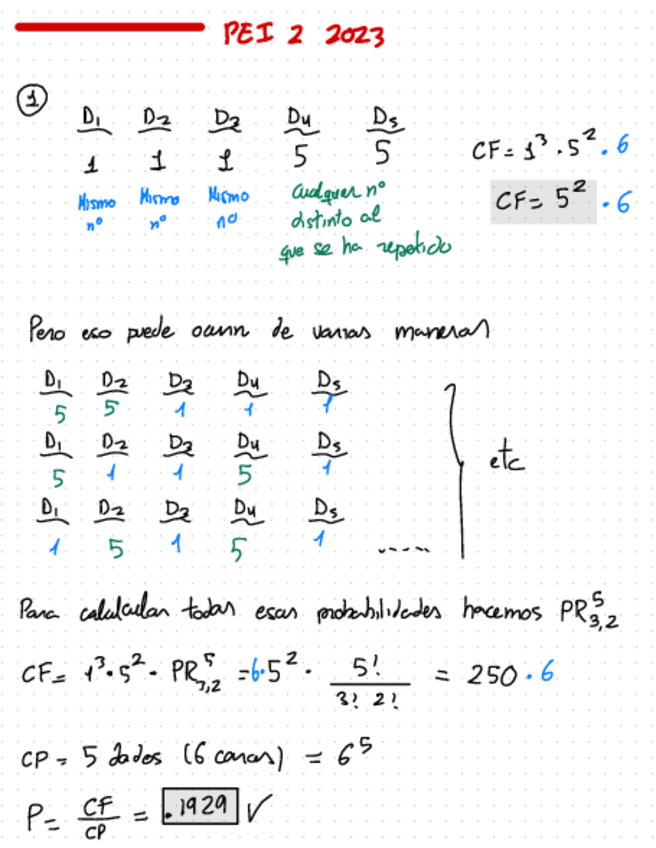 PEI 2 2023
1
D1 D2 D3 D4 D5
1 1 1 5 5
CF = 1³ · 5² · 6
CF = 5² · 6
Mismo nº
Mismo nº
Mismo nº
Cualquier nº
distinto al
que se ha repetido
Pero eso puede ocurrir de varias maneras
D1 D2 D3 D4 D5
5 5 1 1 1
D1 D2 D3 D4 D5
5 1 1 5 1
etc
D1 D2 D3 D4 D5
1 5 1 5 1 .....
Para calcular todas esas probabilidades hacemos PR⁵₃,₂
CF = 1³ · 5² · PR⁵₃,₂ = 6 · 5² · 5! / 3! 2! = 250 · 6
CP = 5 dados (6 caras) = 6⁵
P = CF / CP = .1929 ✓